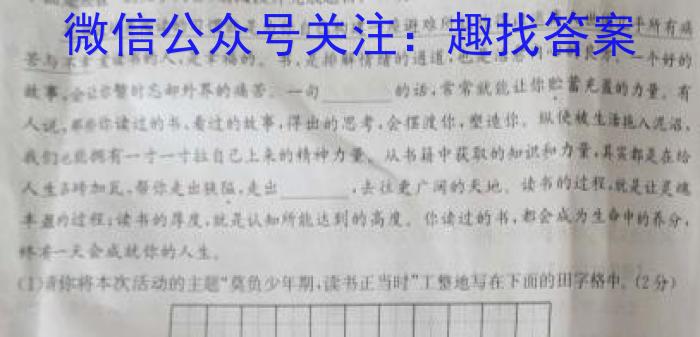 微信公众号关注：趣找答案
避难所
所有痛
苦与
书的人,是幸福的。书,是排解情绪的通道,也是
一个好的
故事,会让你暂时忘却外界的痛苦。一句______的话,常常就能让你贮蓄充盈的力量。有
人说,那些你读过的书,看过的故事,得出的思考,会摆渡你,塑造你。纵使被生活拖入泥沼,
我们也能拥有一寸一寸拉自己上来的精神力量。从书籍中获取的知识和力量,其实都是在给
人生添砖加瓦,帮你走出狭隘,走出______,去往更广阔的天地。读书的过程,就是让灵魂
丰盈的过程;读书的厚度,就是认知所能达到的高度。你读过的书,都会成为生命中的养分,
终有一天会成就你的人生。
(1)请你将本次活动的主题“莫负少年期,读书正当时”工整地写在下面的田字格中。(2分)